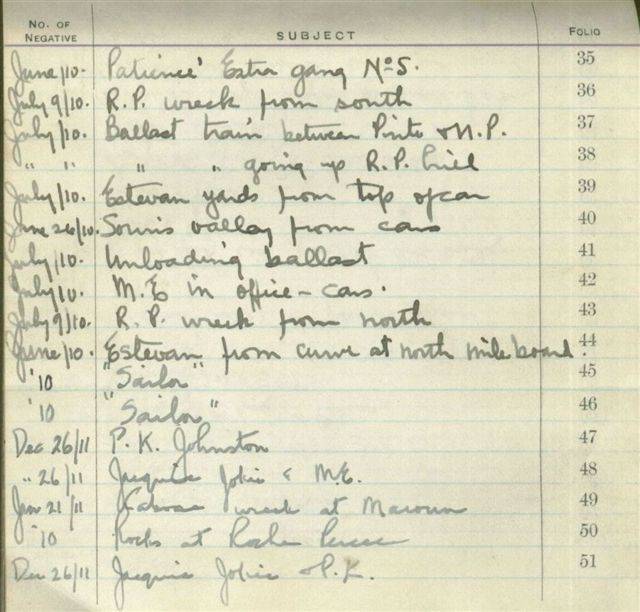 NO. OF NEGATIVE SUBJECT FOLIO
June/10. Patience' Extra gang No 5. 35
July 9/10. R.P. wreck from south 36
July/10. Ballast train between Pinto & N.P. 37
" " " " going up R.P. hill 38
July/10. Estevan yards from top of car 39
June 26/10. Souris valley from cars 40
July/10. Unloading ballast 41
July 10. M.E in office-cars. 42
July 9/10. R.P. wreck from north 43
June/10. Estevan from curve at north mile board. 44
'10 "Sailor" 45
'10 "Sailor" 46
Dec 26/11 P.K. Johnston 47
" 26/11 Jacquie & M.E. 48
21/11 wreck at Macoun 49
'10 Rocks at Roche Percee 50
Dec 26/11 Jacquie & P.K. 51